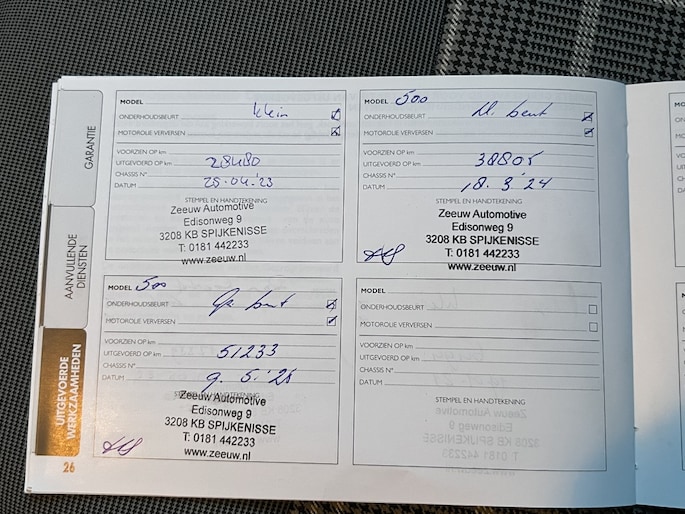 GARANTIE
AANVULLENDE
DIENSTEN
UITGEVOERDE
WERKZAAMHEDEN
26
MODEL
ONDERHOUDSBEURT klein
MOTOROLIE VERVERSEN
VOORZIEN OP km
UITGEVOERD OP km 28480
CHASSIS N°
DATUM 25.04.'23
STEMPEL EN HANDTEKENING
Zeeuw Automotive
Edisonweg 9
3208 KB SPIJKENISSE
T: 0181 442233
www.zeeuw.nl
MODEL 500
ONDERHOUDSBEURT kl. beurt
MOTOROLIE VERVERSEN
VOORZIEN OP km
UITGEVOERD OP km 38805
CHASSIS N°
DATUM 18.3.'24
STEMPEL EN HANDTEKENING
Zeeuw Automotive
Edisonweg 9
3208 KB SPIJKENISSE
T: 0181 442233
www.zeeuw.nl
MODEL 500
ONDERHOUDSBEURT Gr. beurt
MOTOROLIE VERVERSEN
VOORZIEN OP km
UITGEVOERD OP km 51233
CHASSIS N°
DATUM 9.5.'25
STEMPEL EN HANDTEKENING
Zeeuw Automotive
Edisonweg 9
3208 KB SPIJKENISSE
T: 0181 442233
www.zeeuw.nl
MODEL
ONDERHOUDSBEURT
MOTOROLIE VERVERSEN
VOORZIEN OP km
UITGEVOERD OP km
CHASSIS N°
DATUM
STEMPEL EN HANDTEKENING
Zeeuw Automotive
Edisonweg
9
3208 KB SPIJKENISSE
T: 0181 442233